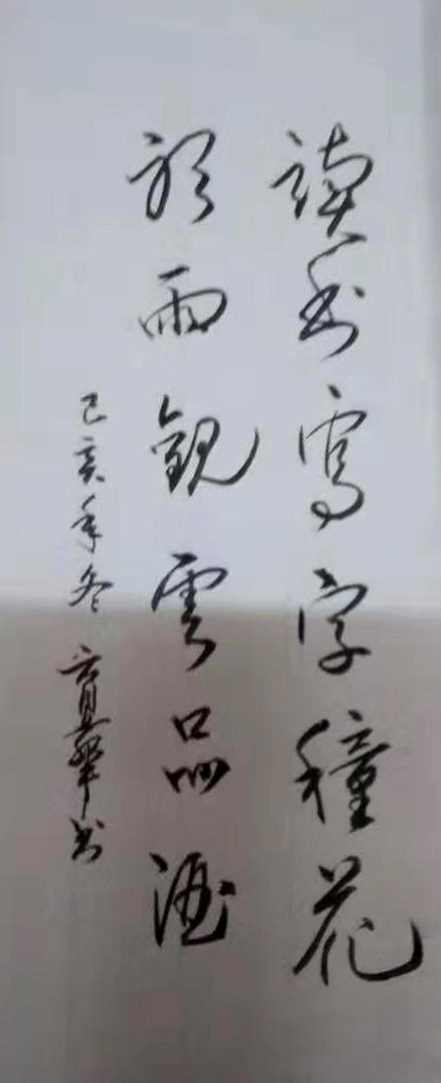 讀书寫字種花
听雨觀雲品酒
己亥年冬 书